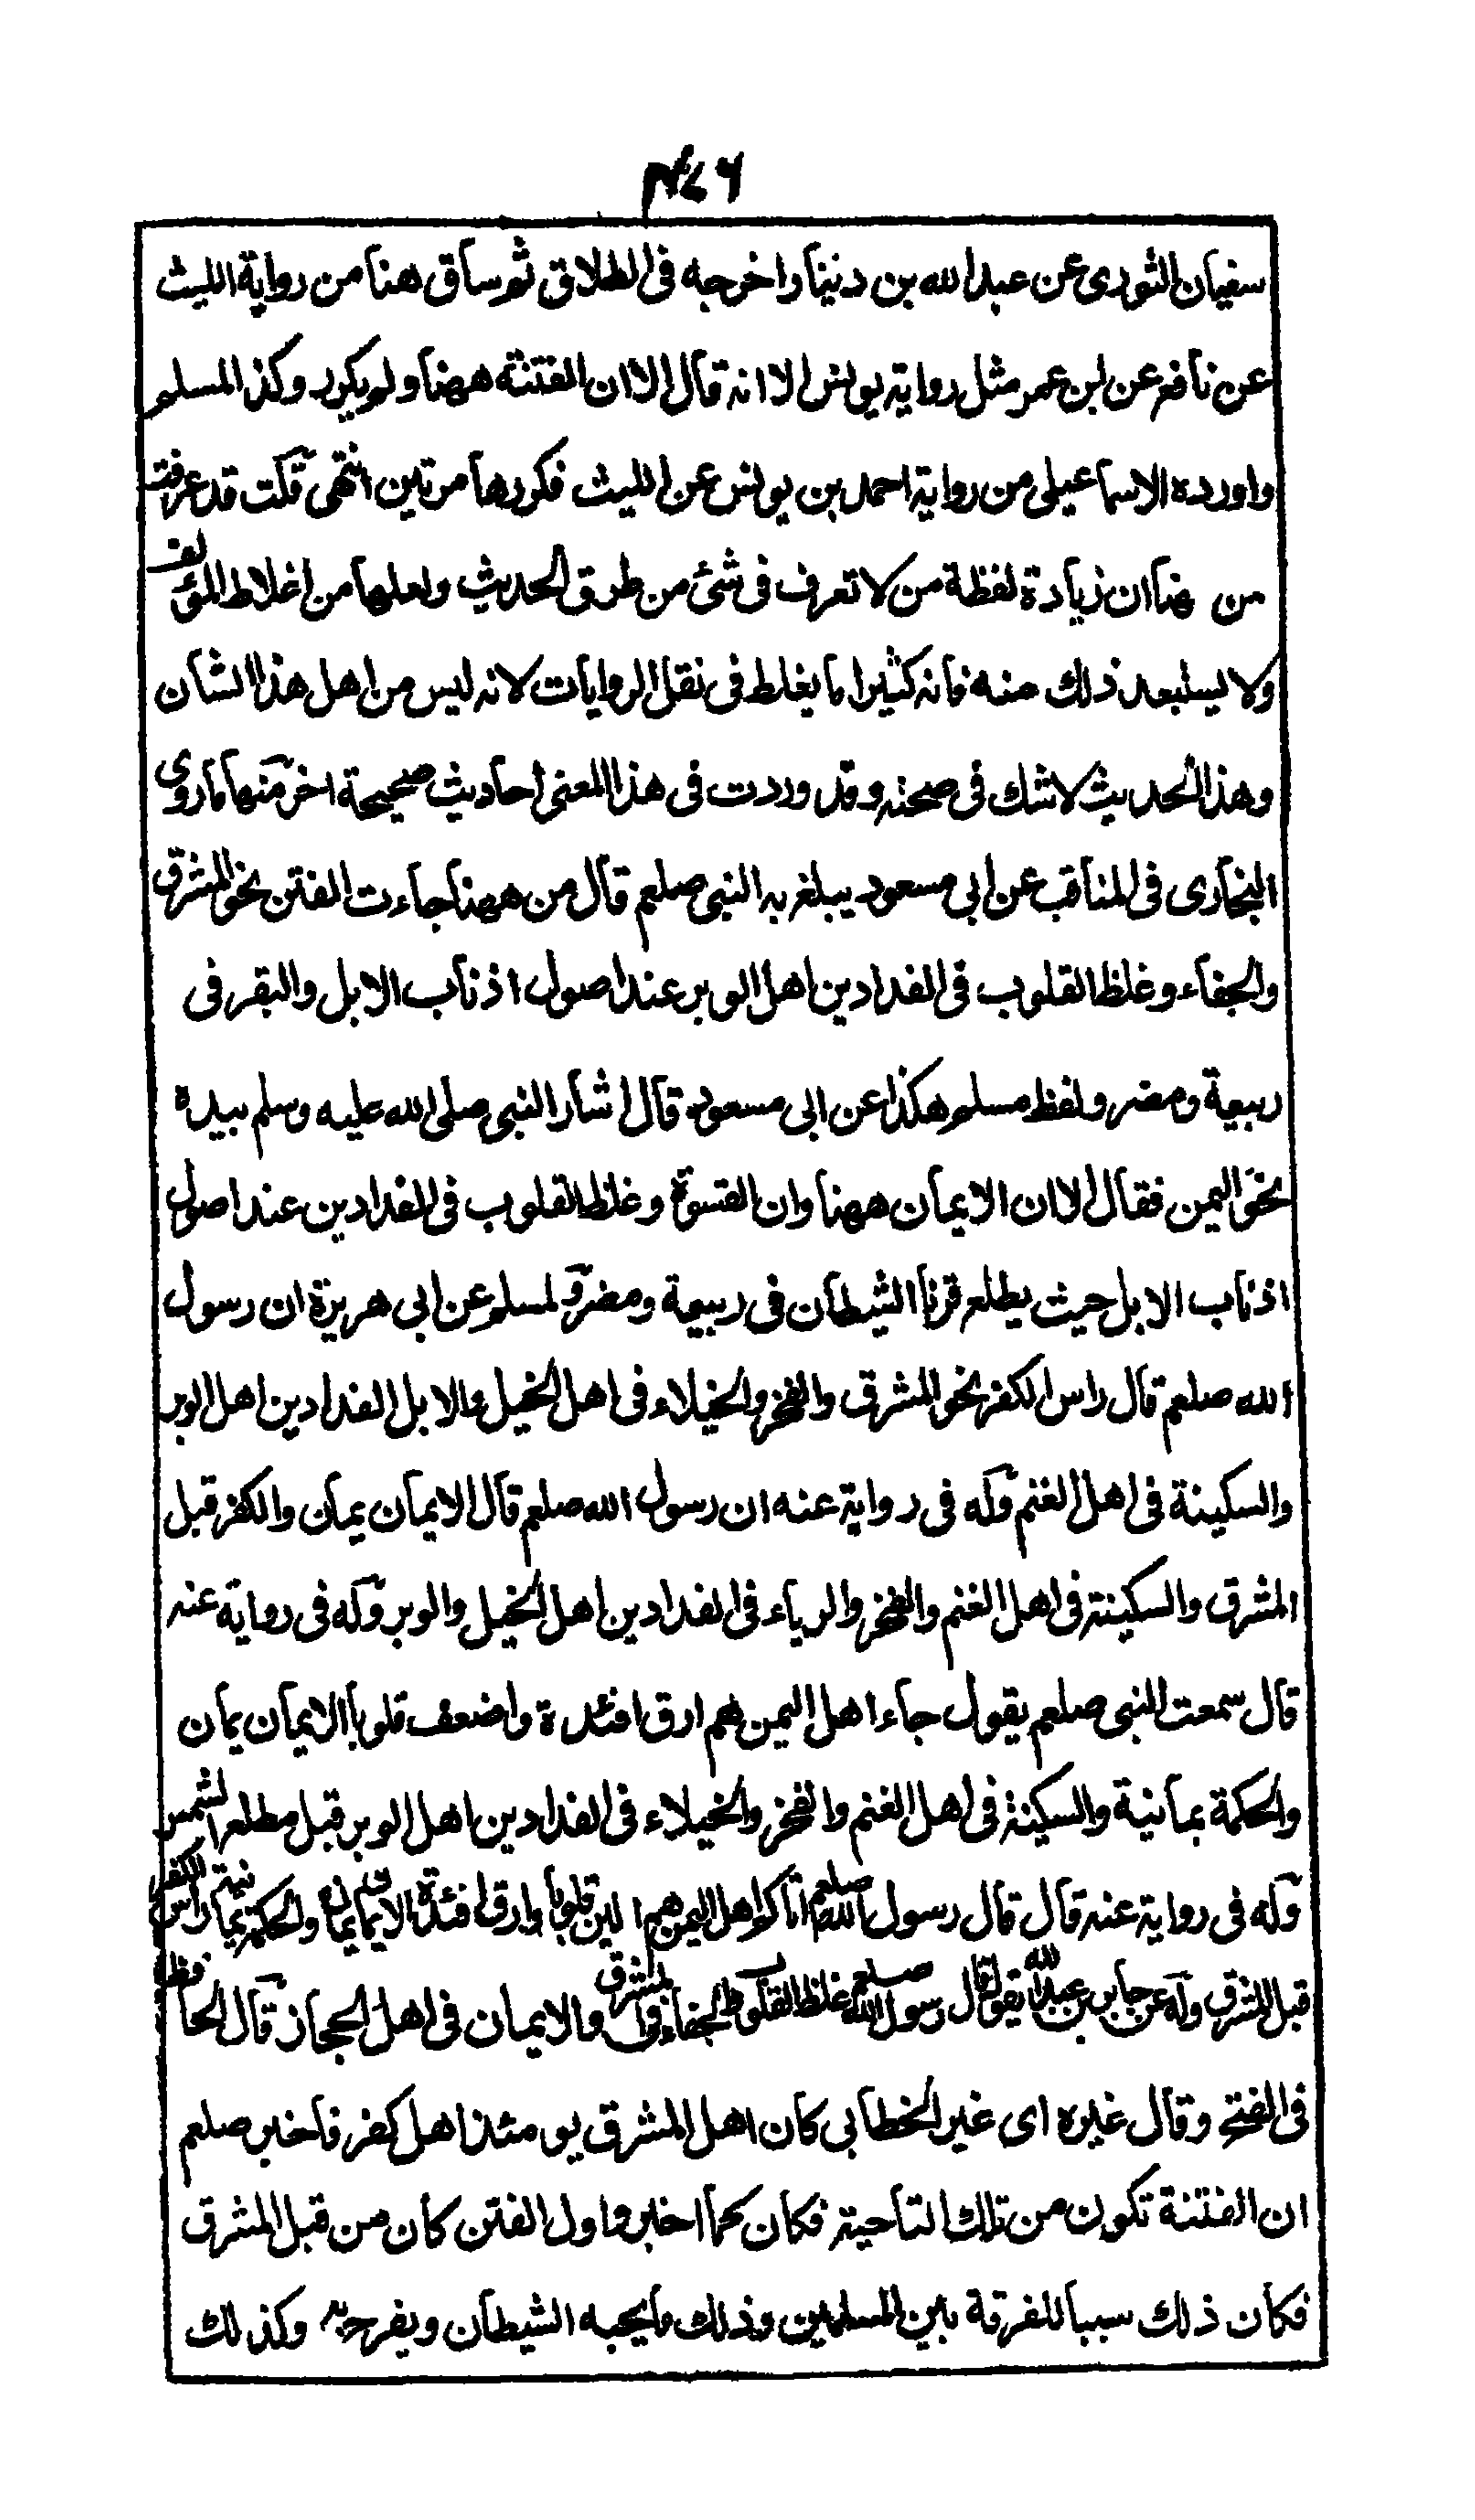 ٤٧٦
سفيان الثوري عن عبد الله بن دينار اخرجه في الطلاق ثم ساق هنا من رواية الليث
عن نافع عن ابن عمر مثل رواية يونس الا انه قال الا ان الفتنة ههنا ولم يكرر وكذا لمسلم
واورده الاسماعيلي من رواية احمد بن يونس عن الليث فكررها مرتين انتهى قلت قد عرفت
من هنا ان زيادة لفظة من لا تعرف في شئ من طرق الحديث ولعلها من اغلاط المؤلف
ولا يستبعد ذلك منه فانه كثيرا ما يغلط في نقل الروايات لانه ليس من اهل هذا الشان
وهذا الحديث لا شك في صحته وقد وردت في هذا المعنى احاديث صحيحة اخر منها ما روى
البخاري في المناقب عن ابي مسعود يبلغ به النبي صلعم قال من ههنا جاءت الفتن نحو المشرق
والجفاء وغلظ القلوب في الفدادين اهل الوبر عند اصول اذناب الابل والبقر في
ربيعة ومضر ولفظ مسلم هكذا عن ابى مسعود قال اشار النبي صلى الله عليه وسلم بيده
نحو اليمن فقال الا ان الايمان ههنا وان القسوة وغلظ القلوب في الفدادين عند اصول
اذناب الابل حيث يطلع قرنا الشيطان في ربيعة ومضر ولمسلم عن ابي هريرة ان رسول
الله صلعم قال راس الكفر نحو المشرق والفخر والخيلاء في اهل الخيل والابل الفدادين اهل الوبر
والسكينة في اهل الغنم وله في رواية عنه ان رسول الله صلعم قال الايمان يمان والكفر قبل
المشرق والسكينة في اهل الغنم والفخر والرياء في الفدادين اهل الخيل والوبر وله في رواية عنه
قال سمعت النبي صلعم يقول جاء اهل اليمن هم ارق افئدة واضعف قلوبا الايمان يمان
والحكمة يمانية والسكينة في اهل الغنم والفخر والخيلاء في الفدادين اهل الوبر قبل مطلع الشمس
وله في رواية عنه قال قال رسول الله صلعم اتاكم اهل اليمن هم الين قلوبا وارق افئدة الايمان يمان والحكمة يمانية راس الكفر
قبل المشرق وله عن جابر بن عبد الله يقول قال رسول الله صلعم غلظ القلوب والجفاء في المشرق والايمان في اهل الحجاز قال الحافظ
في الفتح وقال غيره اى غير الخطابي كان اهل المشرق يومئذ اهل كفر فاخبر صلعم
ان الفتنة تكون من تلك الناحية فكان كما اخبر واول الفتن كان من قبل المشرق
فكان ذلك سببا للفرقة بين المسلمين وذلك ما يحبه الشيطان ويفرح به وكذلك